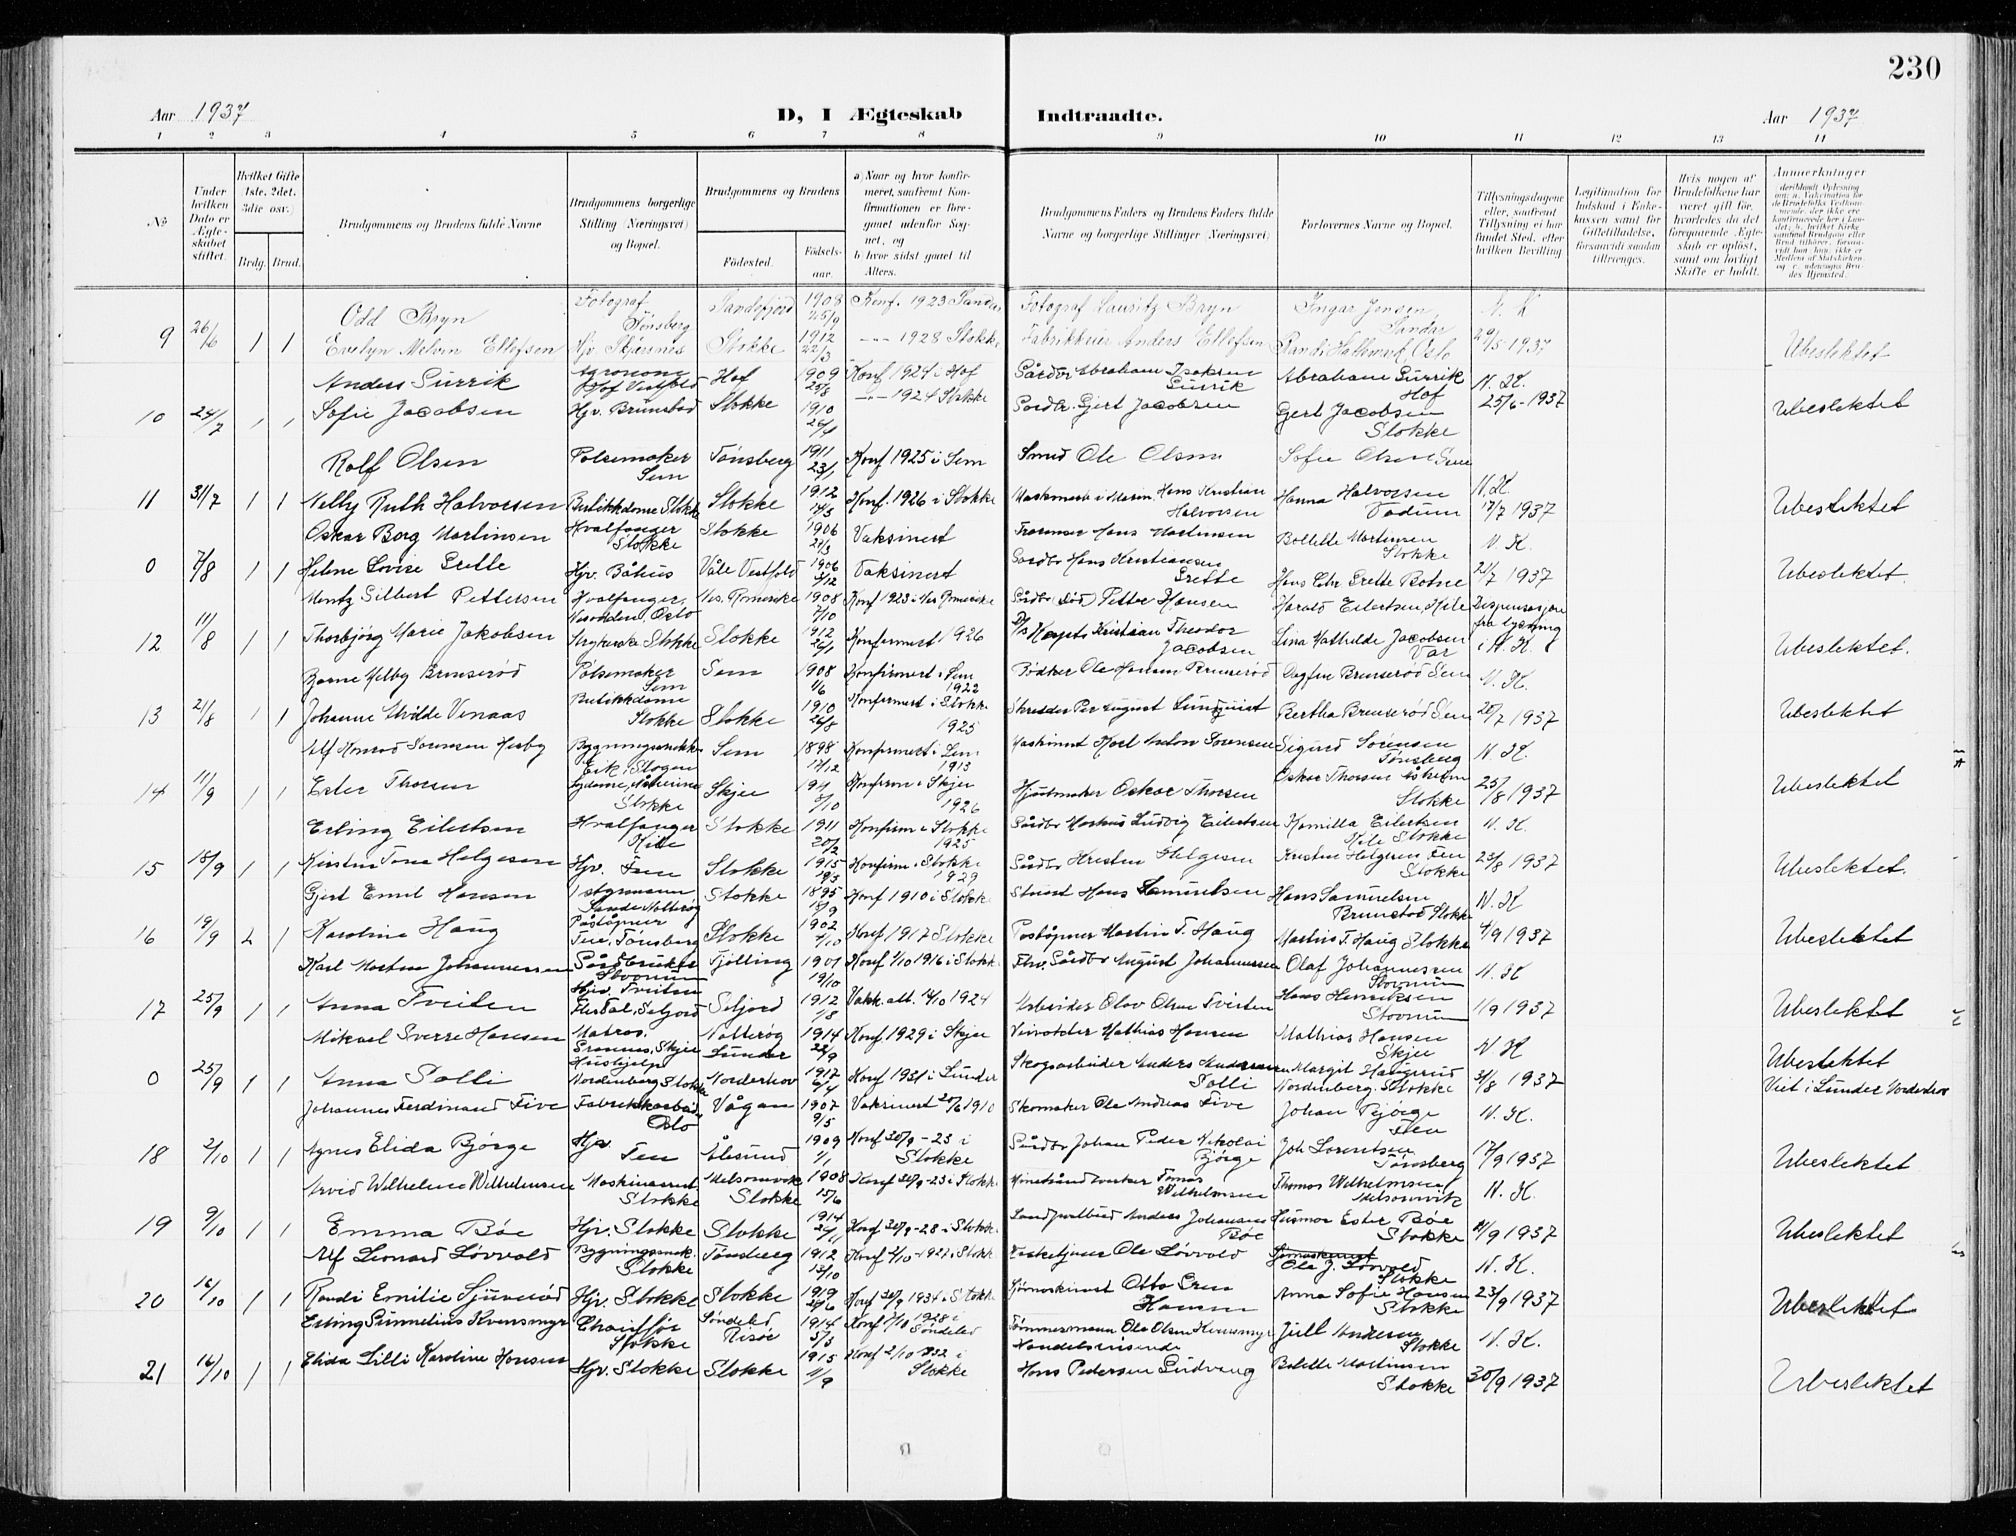 230
Aar 1937
D, I Ægteskab Indtraadte.
Aar 1937
1 2 3 4 5 6 7 8 9 10 11 12 13 14
No
Under hvilken Dato er Ægteskabet stiftet.
Hvilket Gifte 1ste, 2det, 3die osv.
Brdg. Brud.
Brudgommens og Brudens fulde Navne
Brudgommens borgerlige Stilling (Næringsvei) og Bopæl.
Brudgommens og Brudens
Fødested. Fødselsaar.
a) Naar og hvor konfirmeret, saafremt Konfirmationen er foregaaet udenfor Sognet, og
b) hvor sidst gaaet til Alters.
Brudgommens Faders og Brudens Faders fulde Navne og borgerlige Stillinger (Næringsvei)
Forlovernes Navne og Bopæl.
Tillysningsdagene eller, saafremt Tillysning ei har fundet Sted, efter hvilken Bevilling
Legitimation for Indskud i Enkekassen samt for Giftetilladelse, forsaavidt saadan tiltrænges.
Hvis nogen af Brudefolkene har været gift før, hvorledes da det foregaaende Ægteskab er opløst, samt om lovligt Skifte er holdt.
Anmerkninger
Odd Bryn Fotograf Tønsberg Sandefjord 1908 25/9 Konf. 1923 Sandar Fotograf Lauritz Bryn Ingar Jensen Sandar N. K.
9 26/6 1 1 Evelyn Melvin Ellefsen Hjv. Skjærsnes Stokke 1912 22/3 -"- 1928 Stokke Fabrikkeier Anders Ellefsen Randi Oslo 29/5 1937 Ubeslektet
Anders Surrik Agronom Hof Vestfold Hof 1909 25/8 Konf 1924 i Hof Gårdbr Abraham Isaksen Surrik Abraham Surrik Hof N. K.
10 24/7 1 1 Sofie Jacobsen Hjv. Brunstad Stokke 1910 26/4 -"- 1924 Stokke Gårdbr. Gjert Jacobsen Gert Jacobsen Stokke 25/6-1937 Ubeslektet
Rolf Olsen Pølsemaker Sem Tønsberg 1911 23/1 Konf 1925 i Sem Smed Ole Olsen Sofie Olsen Sem N. K.
11 31/7 1 1 Nelly Ruth Halvorsen Butikkdame Stokke Stokke 1912 14/3 Konf. 1926 i Stokke Hans Kristian Halvorsen Hanna Halvorsen Vadum 17/7 1937 Ubeslektet
Oskar Borg Martinsen Hvalfanger Stokke Stokke 1906 21/3 Vaksinert Hans Martinsen Bollette Martinsen Stokke N. K.
0 7/8 1 1 Helene Lovise Grette Hjv. Båhus Våle Vestfold 1906 3/12 Vaksinert Gårdbr Hans Kristiansen Grette Hans Chr Grette Botne 21/7 1937 Ubeslektet.
Mentz Gilbert Pettersen Hvalfanger, Oslo Nes. Romerike 1908 7/10 Konf 1923 i Nes Romerike Gårdbr (død) Petter Hansen Harald Eilertsen, Hile Dispensasjon fra lysning
12 11/8 1 1 Thorbjørg Marie Jakobsen Strykerske Stokke Stokke 1912 26/1 Konfirmert 1926 Kristian Theodor Jacobsen Lina Mathilde Jacobsen Vår i N. K. Ubeslektet.
Bjarne Melby Brenserød Pølsemaker Sem Sem 1908 1/6 Konfirmert i Sem 1922 Bødker Ole Hansen Brenserød Dagfin Brenserød Sem N. K.
13 21/8 1 1 Johanne Milde Venaas Butikkdame Stokke Stokke 1910 26/8 Konfirmert i Stokke 1925 Skredder Per August Lundquist Bertha Brenserød Sem 20/7 1937 Ubeslektet
Alf Konrad Sørensen Hesby Bygningssnekker Eik, Slagen Sem 1898 17/12 Konfirmert i Sem 1913 Maskinist Karl Anton Sørensen Sigurd Sørensen Tønsberg N. K.
14 11/9 1 1 Ester Thorsen Stokke Skjee 191 8/10 Konfirm i Skjee 1926 Oskar Thorsen Oskar Thorsen Stokke 25/8 1937 Ubeslektet
Erling Eilertsen Hvalfanger Hile Stokke 1911 20/2 Konfirm i Stokke 1925 Gårdbr Markus Ludvig Eilertsen Kamilla Eilertsen Hile Stokke N. K.
15 18/9 1 1 Kirsten Tona Helgesen Hjv. Fen Stokke 1915 19/3 Konfirm i Stokke 1929 Gårdbr Kristen Helgesen Kristen Helgesen Fen Stokke 23/8 1937 Ubeslektet.
Gjert Emil Hansen Stokke 1895 18/9 Konf 1910 i Stokke Hans Samuelsen Hans Samuelsen Brunstad Stokke N. K
16 19/9 2 1 Karoline Haug Poståpner Teie, Tønsberg Stokke 1902 4/10 Konf 1917 Stokke Poståpner Martin T. Haug Martin T. Haug Stokke 4/9 1937 Ubeslektet
Karl Morten Johannessen Gårdbruker Stovnum Tjølling 1901 19/10 Konf 1/10 1916 i Stokke Fhv. Gårdbr August Johannessen Olaf Johannessen Stovnum N. K
17 25/9 1 1 Anna Tveiten Hjv. Tveiten Flatdal, Seljord Seljord 1912 1/8 Vakk. att. 14/10 1924 Arbeider Olav Olsen Tveiten Hans Henriksen Stovnum 11/9 1937 Ubeslektet
Mikael Sverre Hansen Matros, Skjee Nøtterøy 1914 22/9 Konf 1929 i Skjee Veivokter Mathias Hansen Mathias Hansen Skjee N K Ubeslektet
0 25/9 1 1 Anna Solli Hushjelp Nordenberg Stokke Lunder Norderhov 1917 6/4 Konf 1931 i Lunder Skogsarbeider Anders Andersen Solli Margit Haugerud Nordenberg, Stokke 31/8 1937 Viet i Lunder Norderhov
Johannes Ferdinand Five Fabrikkarbeid. Oslo Vågan 1907 9/5 Vaksinert 20/6 1910 Skomaker Ole Andreas Five Johan Bjørge Fen N. K.
18 2/10 1 1 Agnes Elida Bjørge Hjv. Fen Ålesund 1909 1/1 Konf 30/9-23 i Stokke Gårdbr Johan Peder Nikolai Bjørge Joh Lorentsen Tønsberg 17/9 1937 Ubeslektet
Arvid Wilhelm Wilhelmsen Maskinassist Stokke Melsomvik Stokke 1908 15/6 Konf 30/9-23 i Stokke Tomas Wilhelmsen Thomas Wilhelmsen Melsomvik N. K.
19 9/10 1 1 Emma Bøe Hjv. Stokke Stokke 1914 26/11 Konf 30/9-28 i Stokke Landpostbud Anders Johansen Bøe Husmor Ester Bøe Stokke 21/9 1937 Ubeslektet
Alf Leonard Løvvold Bygningssnek. Stokke Tønsberg 1912 13/10 Konf 2/10-1927 i Stokke Ole Løvvold Ole J. Løvvold Stokke N. K.
20 16/10 1 1 Randi Emilie Sjuverød Hjv. Stokke Stokke 1919 29/6 Konf 30/9 1934 i Stokke Otto Gren Hansen Anna Sofie Hansen Stokke 23/9 1937 Ubeslektet
Erling Sunnelius Kvensmyr Chauffør Stokke Søndeled Risør 1914 5/3 Konf 7/10 1928 i Søndeled Tømmermann Ole Olsen Kvensmyr Juell Andersen Stokke N. K.
21 16/10 1 1 Elida Lilli Karoline Hansen Hjv. Stokke Stokke 1915 11/9 Konf 2/10 1932 i Stokke Handelsreisende Hans Pedersen Lidvang Bolette Martinsen Stokke 30/9 1937 Ubeslektet